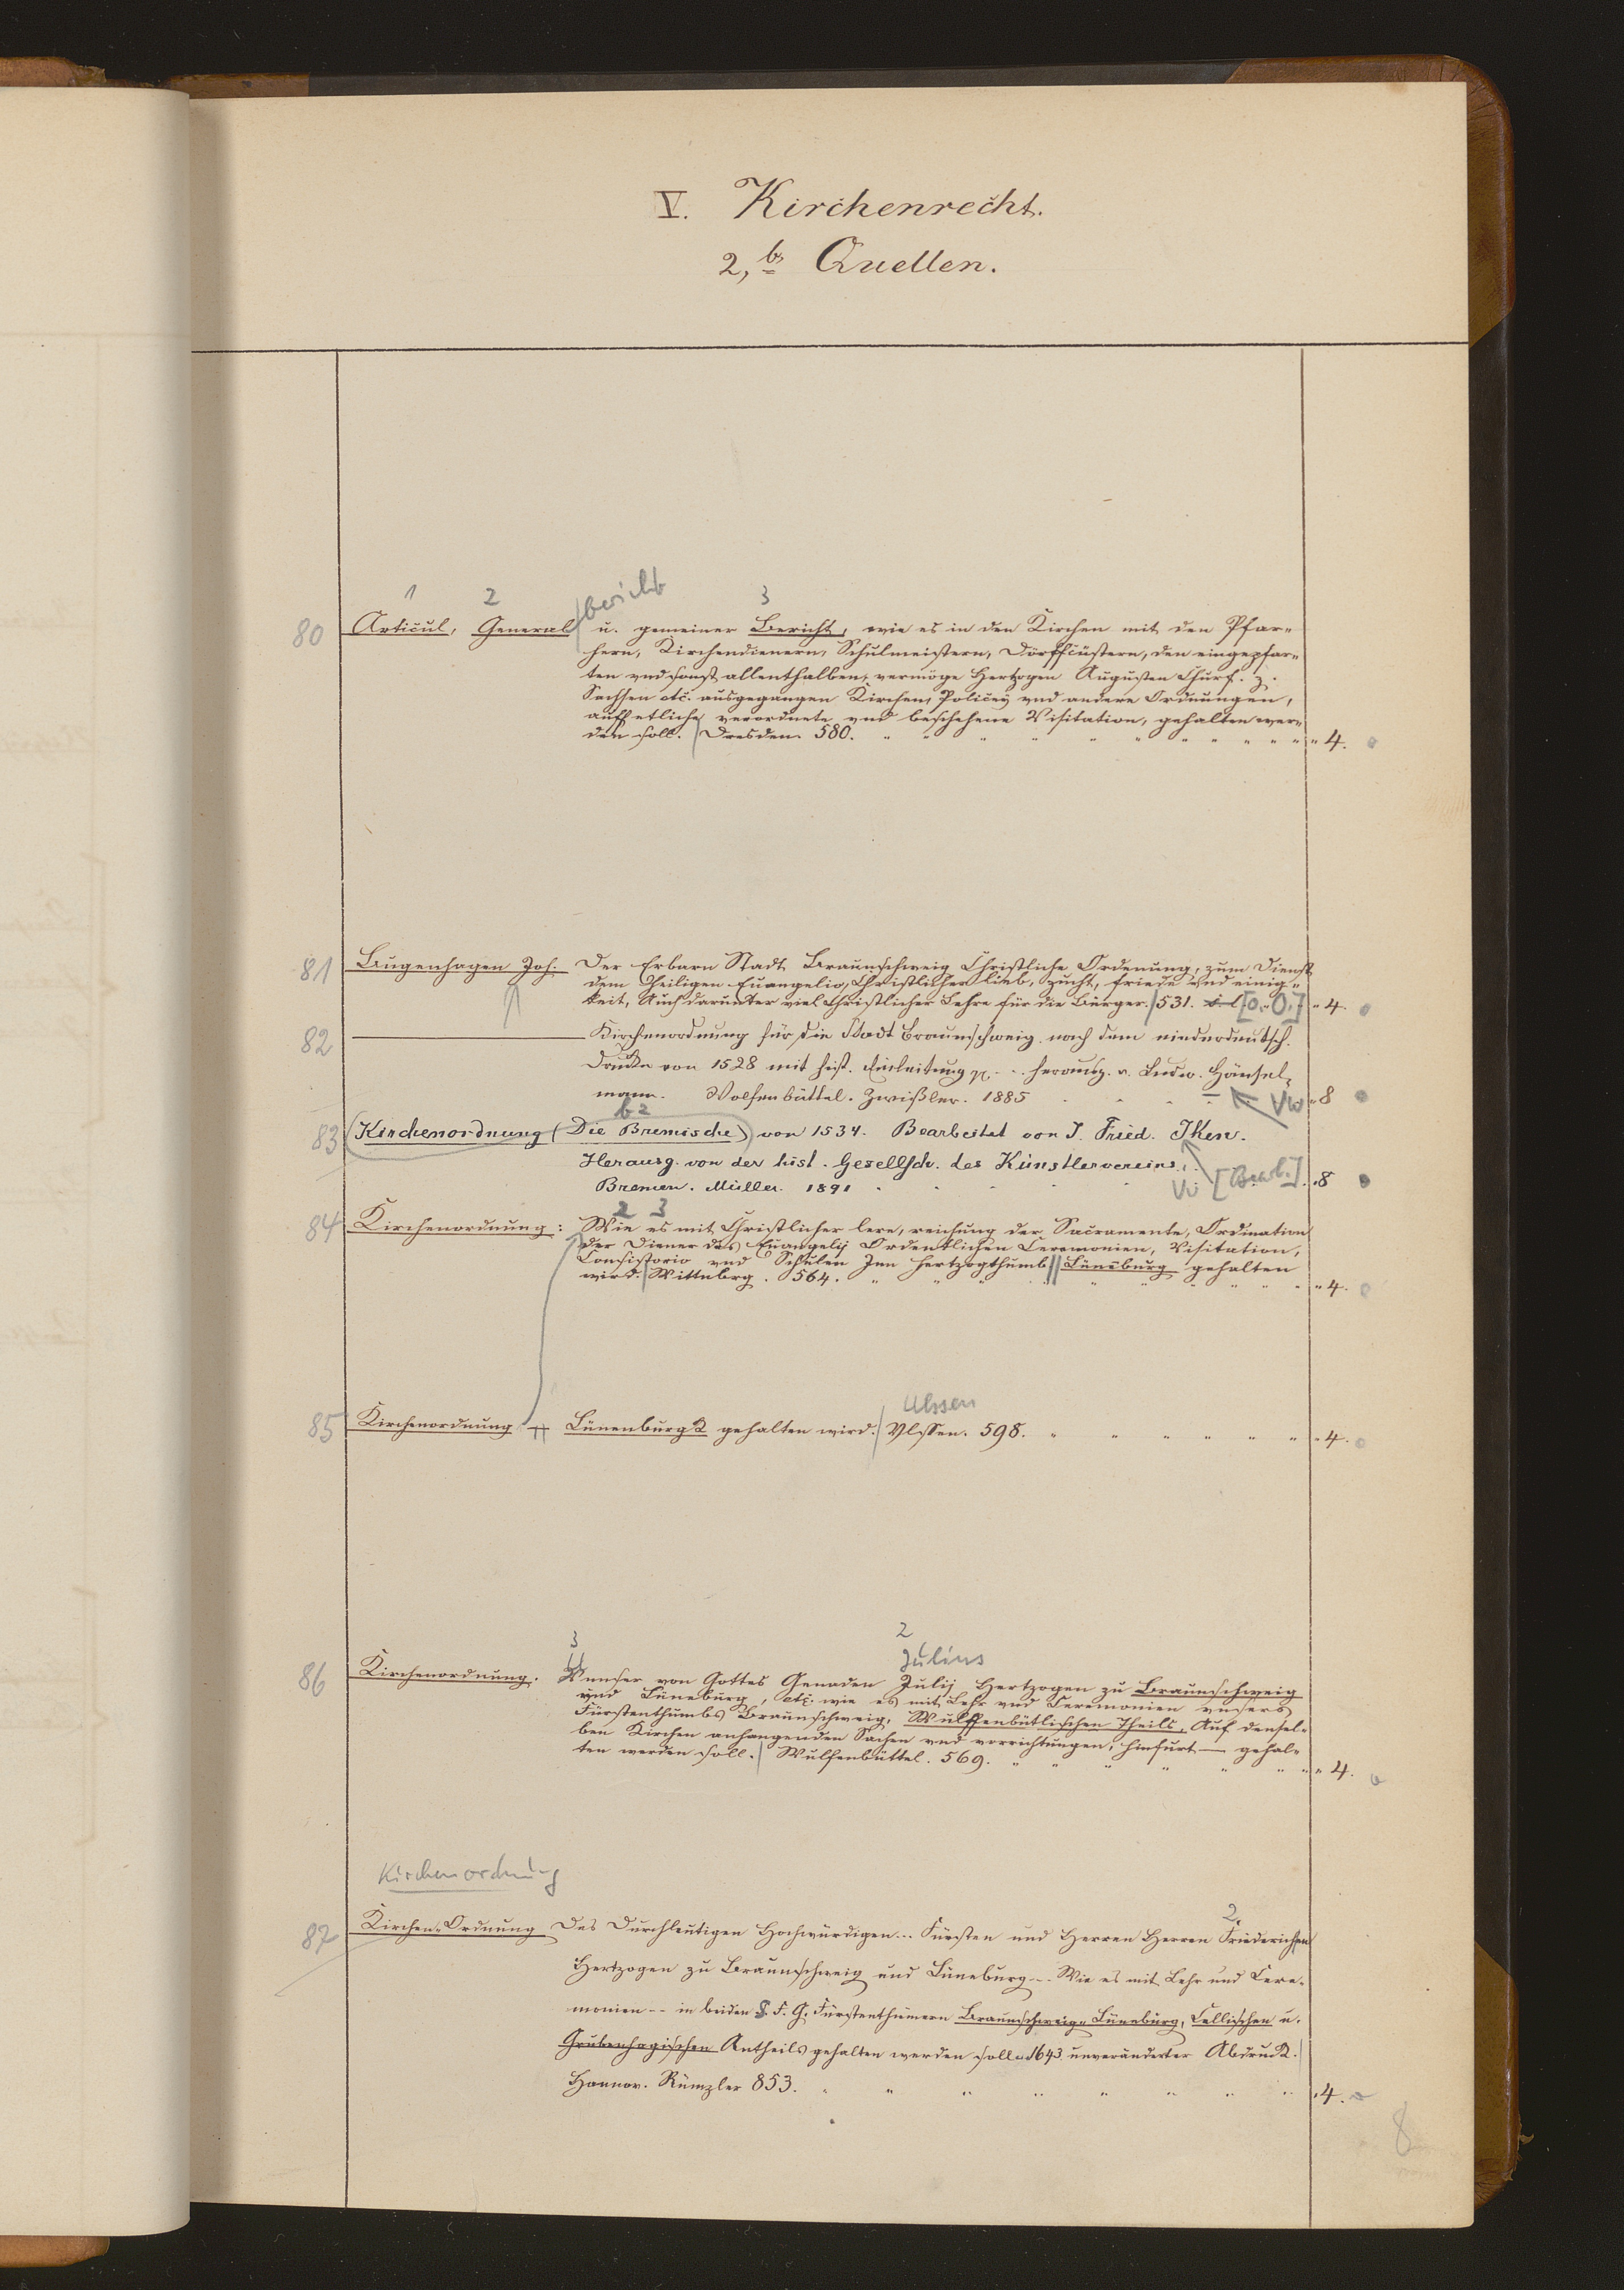 V. Kirchenrecht.
2, b, Quellen.
1 2 bericht 3
80 Articul, General u. gemeiner Bericht, wie es in den Kirchen mit den Pfar-
hern, Kirchendienern, Schulmeistern, Dorffcüstern, den eingepfar-
ten vnd sonst allenthalben, vermöge Hertzogen Augusten Churf. z.
Sachsen etc. ausgegangen Kirchen, Policey vnd andere Ordnungen,
auff etliche verordnete vnd beschehene Visitation, gehalten wer-
den soll. Dresden. 580. " 4.
81 Bugenhagen Joh. Der Erbarn Stadt Braunschweig Christliche Ordenung, zum Dienst
dem Heiligen Euangelio, Christlicher lieb, zucht, friede vnd einig-
keit, Auch darunter viel Christlicher Lehre für die Bürger. 531. [o. O.] " 4.
82 ——— Kirchenordnung für die Stadt Braunschweig nach dem niederdeutsch.
Drucke von 1528 mit hist. Einleitung pp. - - herausg. v. Ludw. Hänsel-
mann. Wolfenbüttel. Zwißler. 1885 Vw " 8
b 2
83 Kirchenordnung (Die Bremische) von 1534. Bearbeitet von J. Fried. Iken.
Herausg. von der hist. Gesellsch. des Künstlervereins.
Bremen. Müller. 1891 Vw [Bearb.] " 8
2 3
84 Kirchenordnung: Wie es mit Christlicher lere, reichung der Sacramente, Ordination
der Diener des Euangelij Ordentlichen Ceremonien, Visitation,
Consistorio vnd Schulen Jnn Hertzogthumb || Lüneburg gehalten
wird. Wittnbrg. 564. " 4.
Ulssen
85 Kirchenordnung Lünenburgk gehalten wird. Vlssen. 598. " 4.
3 2
Julius
86 Kirchenordnung. Vnnser von Gottes Genaden Julij Hertzogen zu Braunschweig
vnd Lüneburg, etc. wie es mit Lehr vnd Ceremonien vnsers
Fürstenthumbs Braunschweig, Wulffenbütlischen Theils, Auf densel-
ben Kirchen anhangenden Sachen vnd vorrichtungen, hinfurt — gehal-
ten werden soll. Wulfenbüttel. 569. " 4.
Kirchenordnung
2
87 Kirchen-Ordnung Des Durchleutigen Hochwürdigen... Fürsten und Herren Herren Friederichen
Hertzogen zu Braunschweig und Lüneburg - - Wie es mit Lehr und Cere-
monien - - in beiden S. F. G. Fürstenthümern Braunschweig-Lüneburg, Cellischen u.
Grubenhagischen Antheils gehalten werden soll. 1643 unveränderter Abdruck.
Hannov. Rümpler 853. " 4.
8